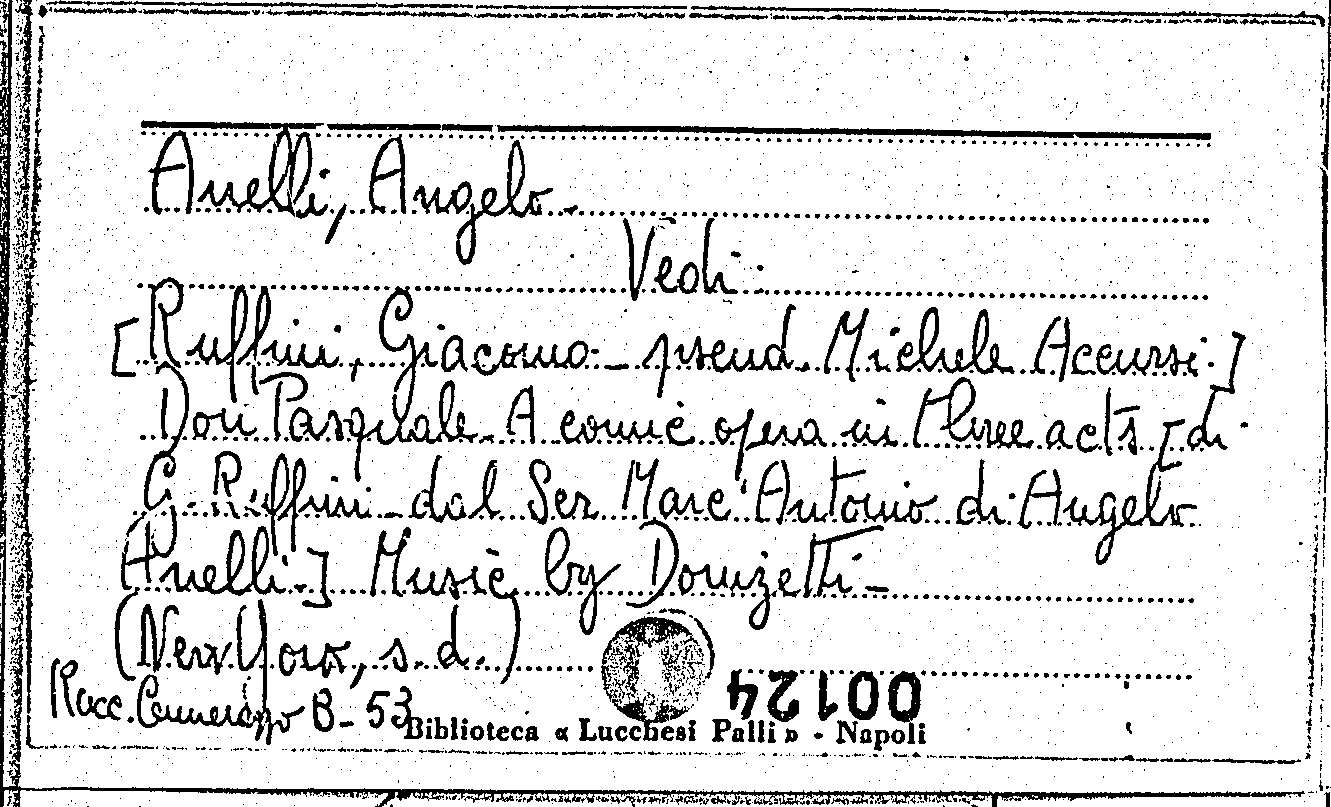 Anelli, Angelo -
Vedi:
[Ruffini, Giacomo - pseud. Michele Accursi.]
Don Pasquale. A comic opera in three acts [di
G. Ruffini - dal Ser Marc'Antonio di Angelo
Anelli.] Music by Donizetti -
(New York, s. d.)
00124
Racc. B - 53
Biblioteca « Lucchesi Palli » - Napoli